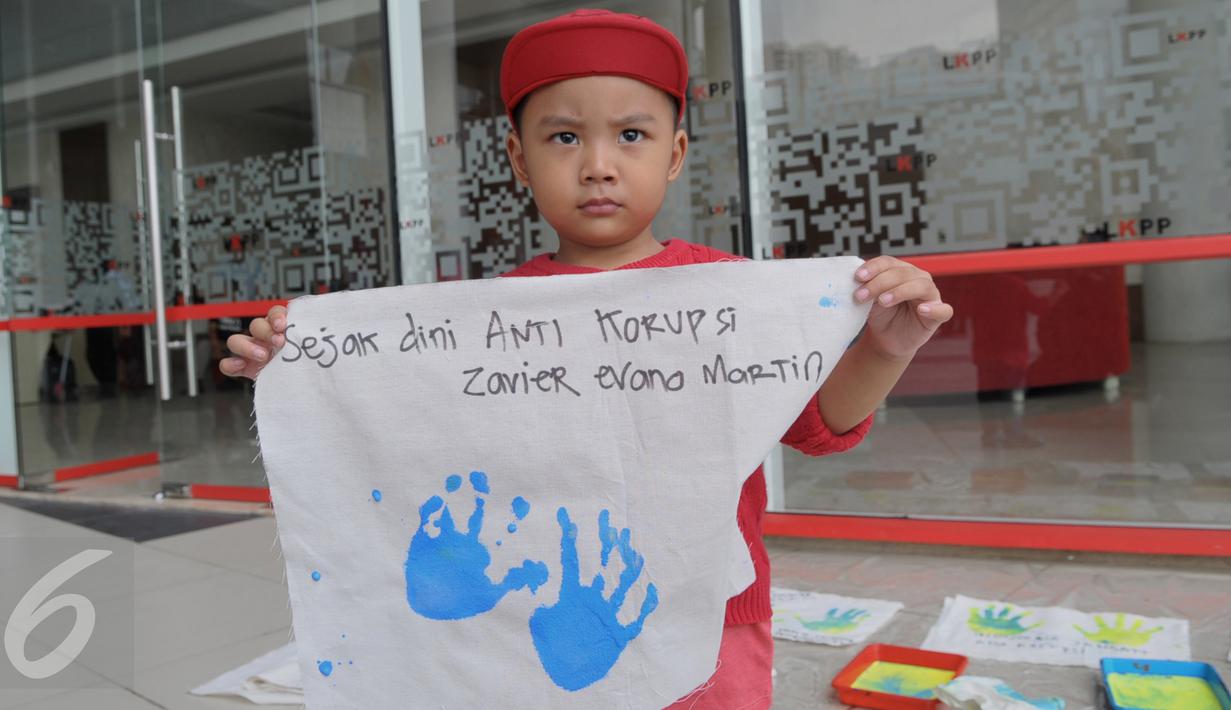 LKPP
LKPP
LKPP
LKPP
LKPP
LKPP
Sejak dini ANTI KORUPSI
Zavier evano Martin
6